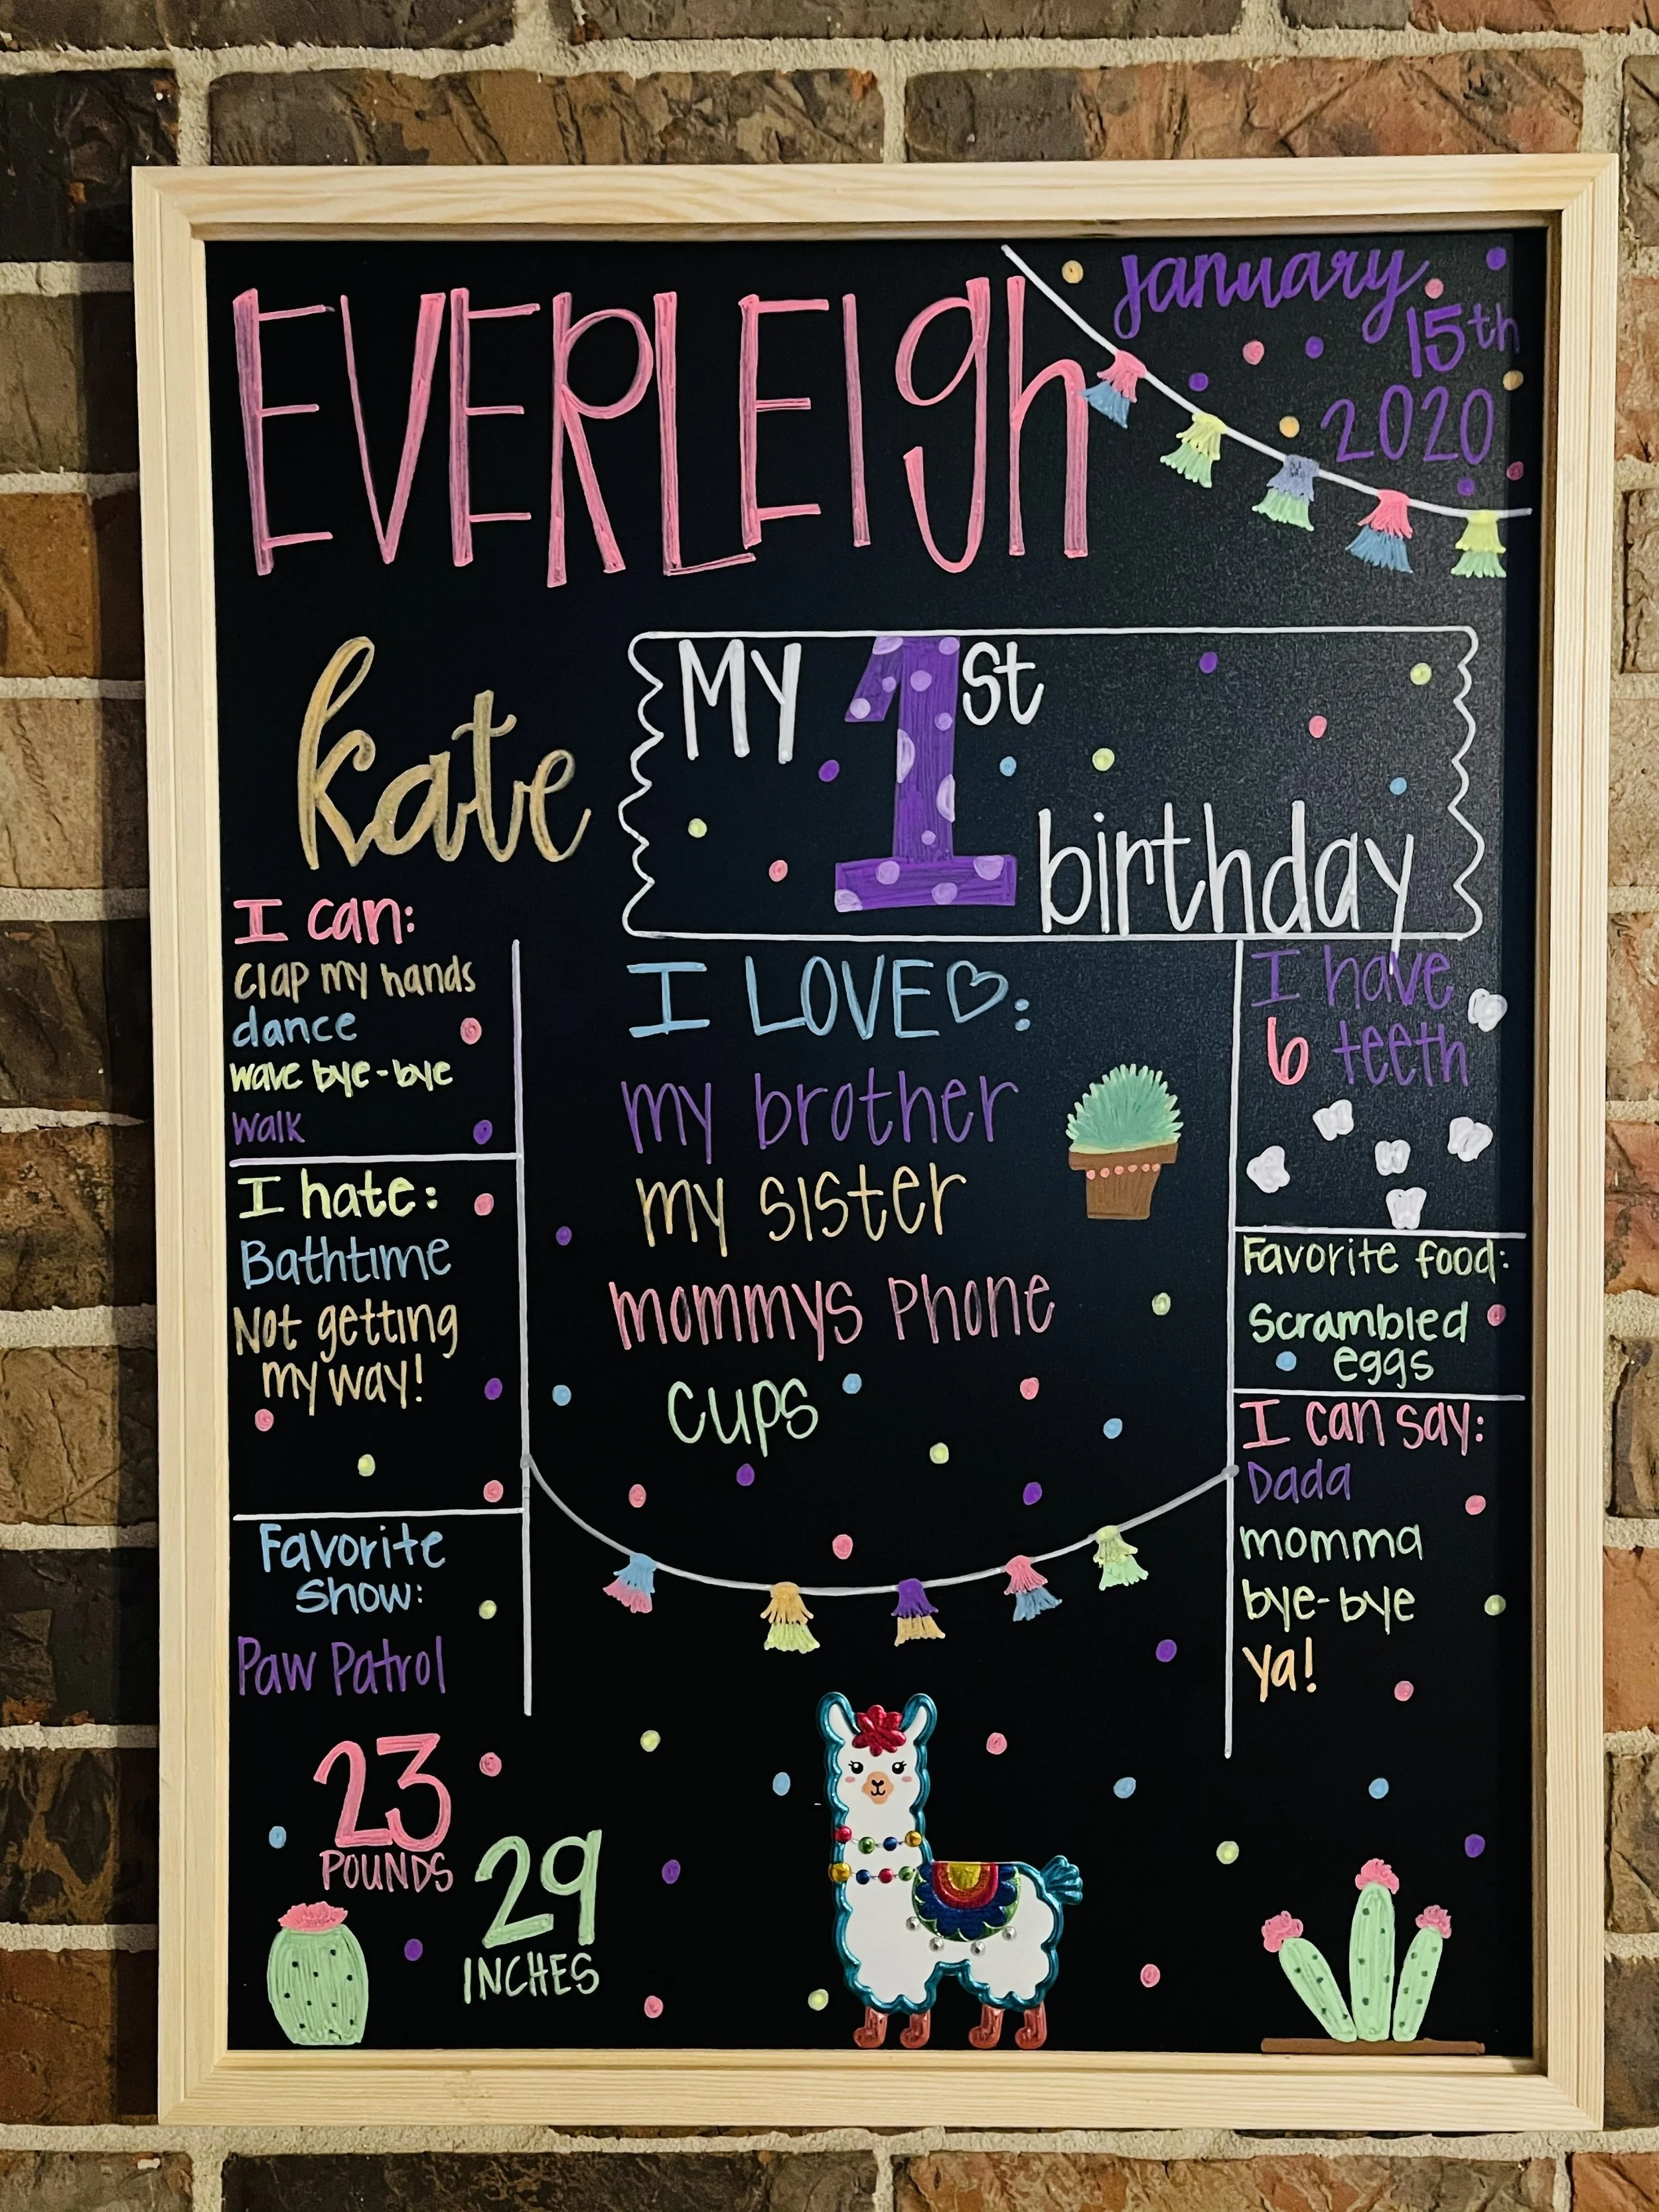 EVERLEIgh
January
15th
2020
kate
MY 1st
birthday
I can:
Clap my hands
dance
wave bye-bye
Walk
I hate:
Bathtime
Not getting
my way!
Favorite
Show:
Paw Patrol
23
POUNDS
29
INCHES
I LOVE♡:
my brother
my sister
mommys Phone
Cups
I have
6 teeth
Favorite food:
Scrambled
eggs
I can say:
Dada
momma
bye-bye
ya!